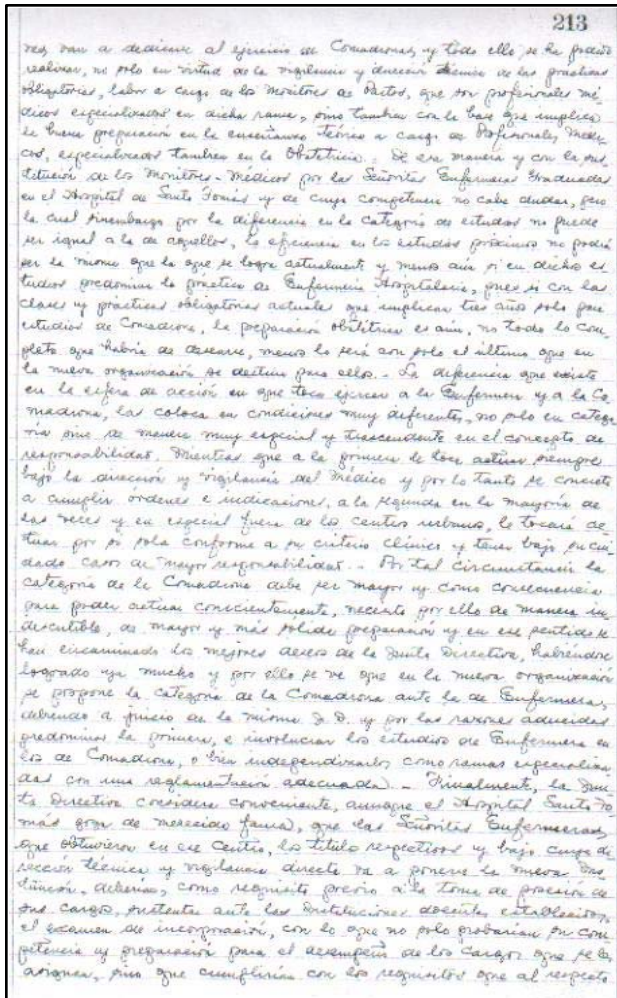 213
vez van a dedicarse al ejercicio de Comadronas, y todo ello se ha podido
realizar, no solo en virtud de la vigilancia y dirección técnica de las prácticas
obligatorias, labor a cargo de los monitores de Partos, que son profesionales mé-
dicos especializados en dicha rama, sino tambien con la base que implica
la buena preparación en la enseñanza teórica a cargo de Profesionales Médi-
cos, especializados tambien en la Obstetricia. De esa manera y con la sus-
titución de los Monitores-Médicos por las Señoritas Enfermeras Graduadas
en el Hospital de Santo Tomás y de cuya competencia no cabe dudar, pero
la cual sinembargo por la diferencia en la categoría de estudios no puede
ser igual a la de aquellos, la eficiencia en los estudios próximos no podrá
ser la misma que la que se logra actualmente y menos aún si en dichos es-
tudios predomina la práctica de Enfermería Hospitalaria, pues si con las
clases y prácticas obligatorias actuales que implican tres años solo para
estudios de Comadrona, la preparación obstétrica es aún, no todo lo com-
pleto que habría de desearse, menos lo será con solo el último que en
la nueva organización se destina para ellos.- La diferencia que existe
en la esfera de acción en que toca ejercer a la Enfermera y a la Co-
madrona, las coloca en condiciones muy diferentes, no solo en catego-
ría sino de manera muy especial y trascendente en el concepto de
responsabilidad. Mientras que a la primera le toca actuar siempre
bajo la dirección y vigilancia del Médico y por lo tanto se concreta
a cumplir ordenes e indicaciones, a la segunda en la mayoría de
las veces y en especial fuera de los centros urbanos, le tocará ac-
tuar por si sola conforme a su criterio clínico y tener bajo su cui-
dado casos de mayor responsabilidad.- Por tal circunstancia la
categoría de la Comadrona debe ser mayor y como consecuencia
para poder actuar concientemente, necesita por ello de manera in-
discutible, de mayor y más sólida preparación y en ese sentido se
han encaminado los mejores deseos de la Junta Directiva, habiéndose
logrado ya mucho y por ello se ve que en la nueva organización
se propone la categoría de la Comadrona ante la de Enfermera,
debiendo a juicio de la misma J. D. y por las razones aducidas
predominar la primera, e involucrar los estudios de Enfermera en
los de Comadrona, o bien independizarlos como ramas especializa-
das con una reglamentación adecuada.- Finalmente, la Jun-
ta Directiva considera conveniente, aunque el Hospital Santo To-
más goza de merecida fama, que las Señoritas Enfermeras,
que obtuvieron en ese Centro, los título respectivos y bajo cuya di-
rección técnica y vigilancia directa va a ponerse la nueva Ins-
titución, deberían, como requisito previo a la toma de posesión de
sus cargos, sustentar ante las Instituciones docentes establecidas,
el examen de incorporación, con lo que no solo probarían su com-
petencia y preparación para el desempeño de los cargos que se les
asignan, sino que cumplirían con los requisitos que al respecto